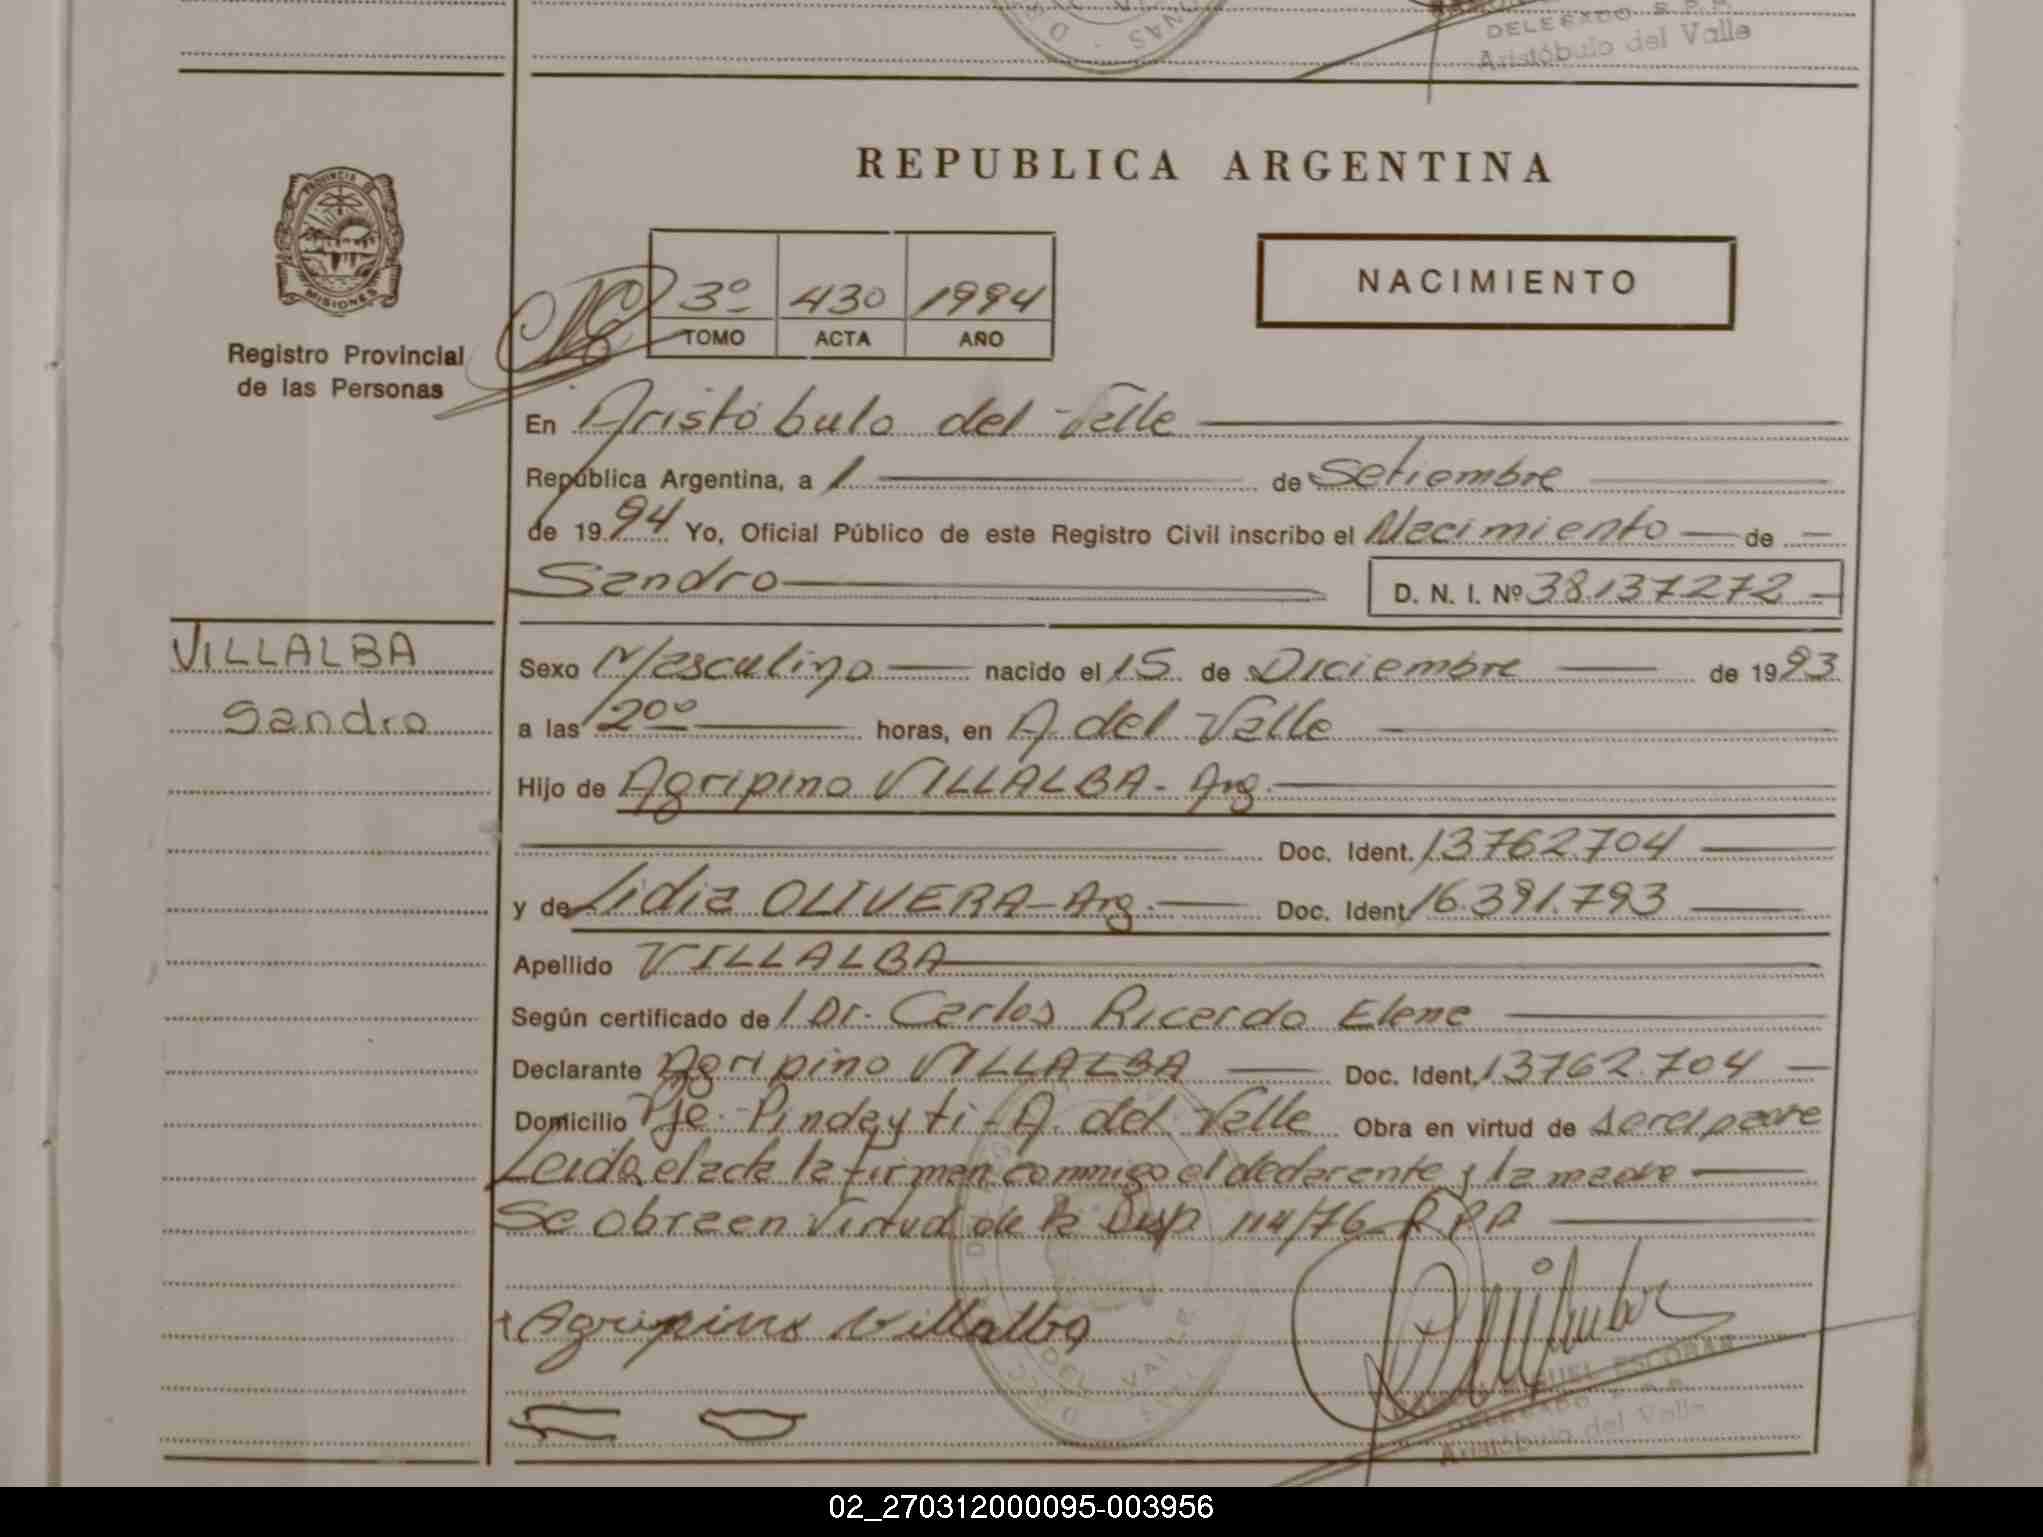 DELEGADO R.P.P.
Aristóbulo del Valle
REPUBLICA ARGENTINA
PROVINCIA DE
MISIONES
Registro Provincial
de las Personas
3º 430 1994
TOMO ACTA AÑO
NACIMIENTO
En Aristóbulo del Valle
República Argentina, a 1 de Setiembre
de 1994 Yo, Oficial Público de este Registro Civil inscribo el Nacimiento de
Sandro D. N. I. Nº 38.137272
VILLALBA
Sandro
Sexo Masculino nacido el 15 de Diciembre de 1993
a las 20ºº horas, en A. del Valle
Hijo de Agripino VILLALBA - Arg.
Doc. Ident. 13762.704
y de Lidia OLIVERA - Arg. Doc. Ident. 16.391.793
Apellido VILLALBA
Según certificado de l Dr. Carlos Ricardo Elene
Declarante Agripino VILLALBA Doc. Ident. 13762.704
Domicilio Pje. Pindayti - A. del Valle Obra en virtud de ser el padre
Leida el acta la firman conmigo el declarante y la madre
Se obra en virtud de la Disp 114/76 - R.P.P
Agripino Villalba
MIGUEL ESCOBAR
DELEGADO R.P.P.
Aristóbulo del Valle
DEL VALLE
02_270312000095-003956